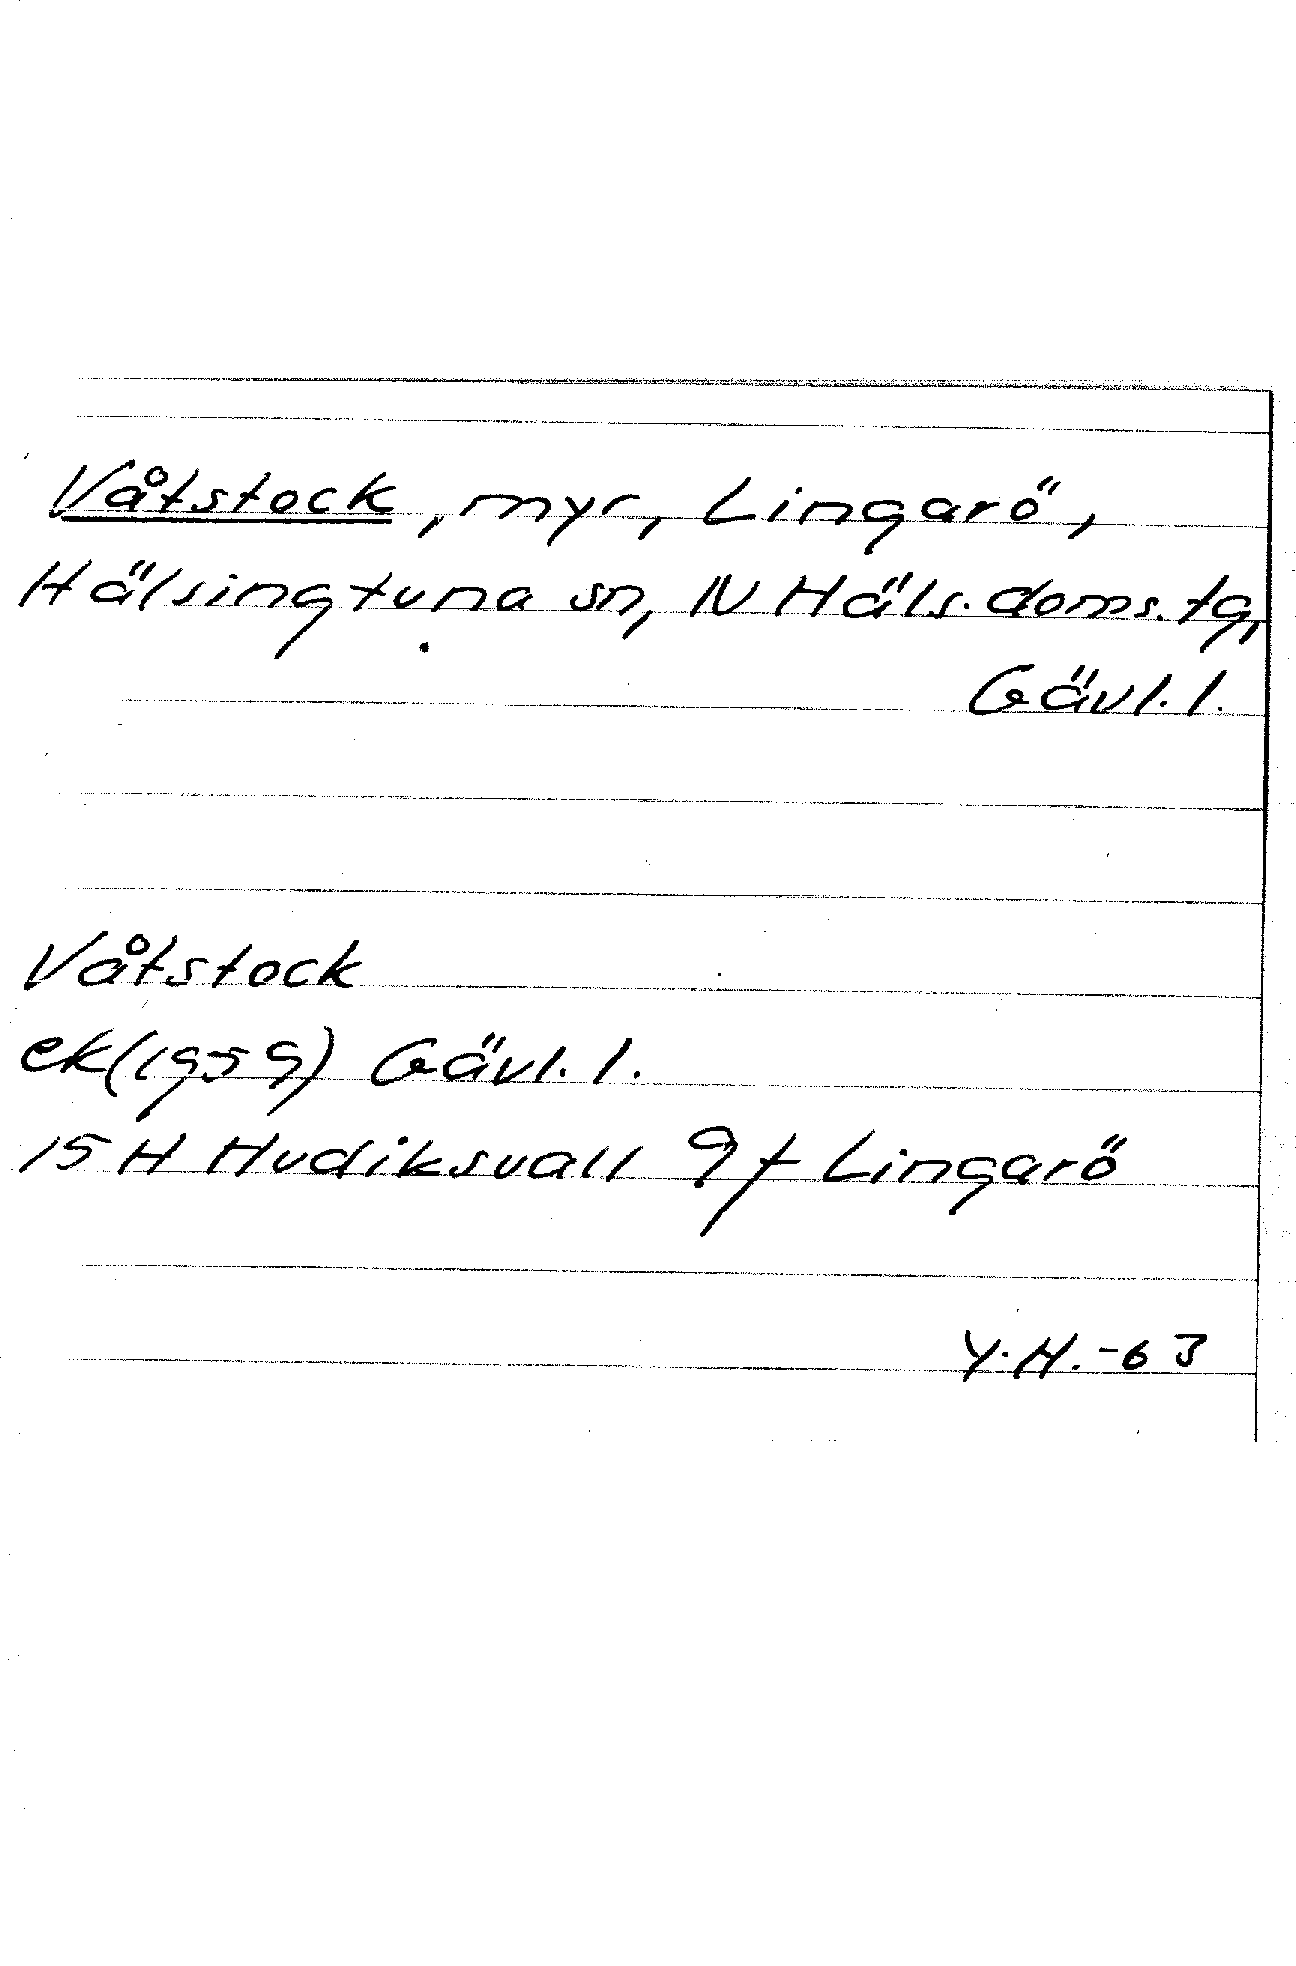 Våtstock, myr, Lingarö,
Hälsingtuna sn, N Häls. doms. tg,
Gävl. l.
Våtstock
ek(1959) Gävl. l.
15 H Hudiksvall 9f Lingarö
Y. H. -63